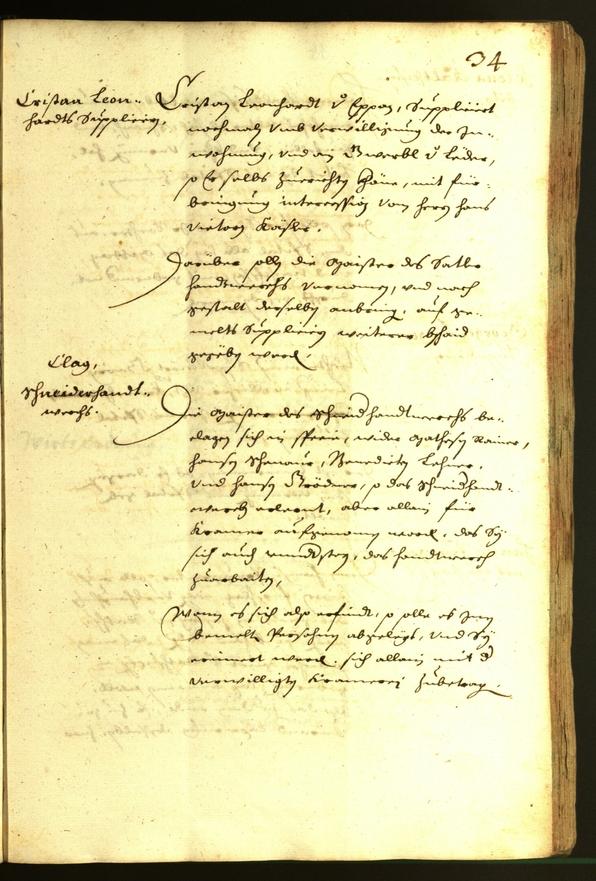 34
Cristan Leon-
hardts Supplicirn.
Cristan Leonhardt v Eppan, Suppliciert
nochmaln umb verwilligung der In-
wohnung, und ain Gwerbl v Leder,
so Er selbs zuerichtn thäte, mit für-
bringung intercession von herrn hans
victorn Käßler.
Darüber solln die Maister des Satler
handtwerchs vernomen, und nach
gestalt derselben anbring, auf ge-
melts Supplicirn weiterer bschaid
geseben werden.
Clag,
Schneiderhandt-
werchs.
Die Maister des Schneiderhandtwerchs be-
clagen sich in specie, wider Mathesen Rainer,
hansen Benedicten Lehner,
und hansen Grödner, so das Schneiderhandt-
werch erlernt, aber allain für
Kramer aufgenomen worden, das Sy
sich auch understen, das handtwerch
zuarbaiten,
Wann es sich also erfindt, so solle es Inen
bemelten Persohnen abgelegt, und Sy
erinnert werden, sich allain mit d
verwilligten Kramerej zubetragen.